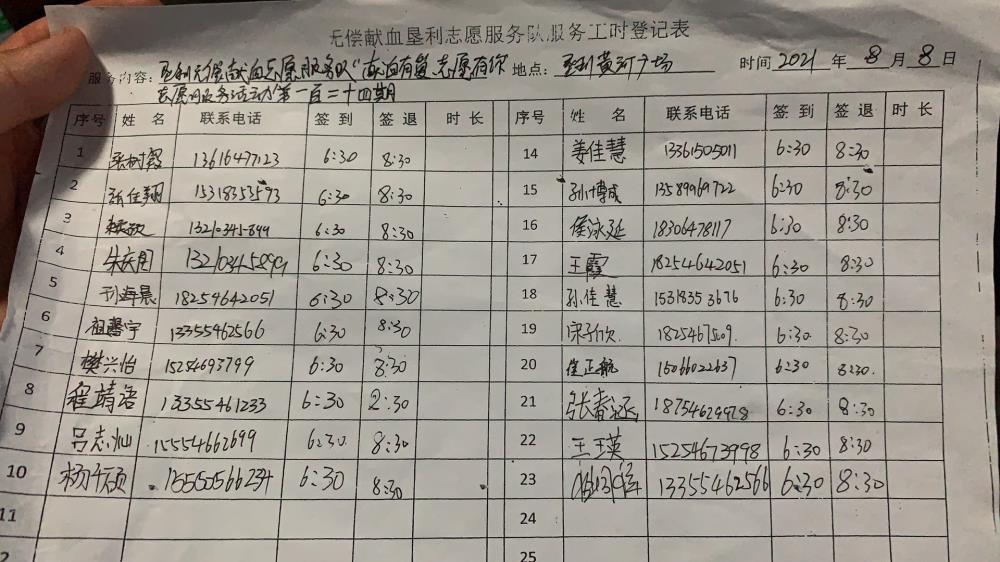 无偿献血垦利志愿服务队服务工时登记表
服务内容: 垦利无偿献血志愿服务队“ 有 志愿有你 地点: 垦利黄河广场 时间 2021 年 8 月 8 日
志愿服务活动第一百二十四期
序号 姓 名 联系电话 签 到 签 退 时 长 序号 姓 名 联系电话 签 到 签 退 时 长
1 张树霞 13616497123 6:30 8:30 14 姜佳慧 13361505011 6:30 8:30
2 张佳翔 15318353573 6:30 8:30 15 孙博成 13589969722 6:30 8:30
3 6:30 8:30 16 侯泳延 18306478117 6:30 8:30
4 朱庆国 6:30 8:30 17 王霞 18254642051 6:30 8:30
5 海晨 18254642051 6:30 8:30 18 孙佳慧 15318353676 6:30 8:30
6 祖馨宇 13355462566 6:30 8:30 19 宋子欣 6:30 8:30
7 樊兴怡 15254693799 6:30 8:30 20 崔正航 15066022637 6:30 8:30.
8 程靖语 13355461233 6:30 2:30 21 张春涵 18754629978 6:30 8:30
9 吕志灿 15554662699 6:30 8:30 22 王王瑛 15254673998 6:30 8:30
10 杨千硕 15505566234 6:30 8:30 23 13355462566 6:30 8:30
11 24
25